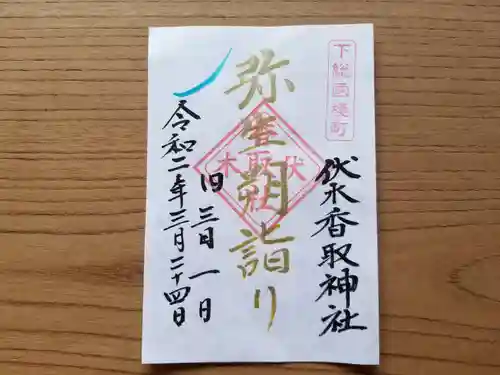 下総国境町
伏木香取神社
弥生朔詣り
伏木
香取社
旧三月一日
令和二年三月二十四日